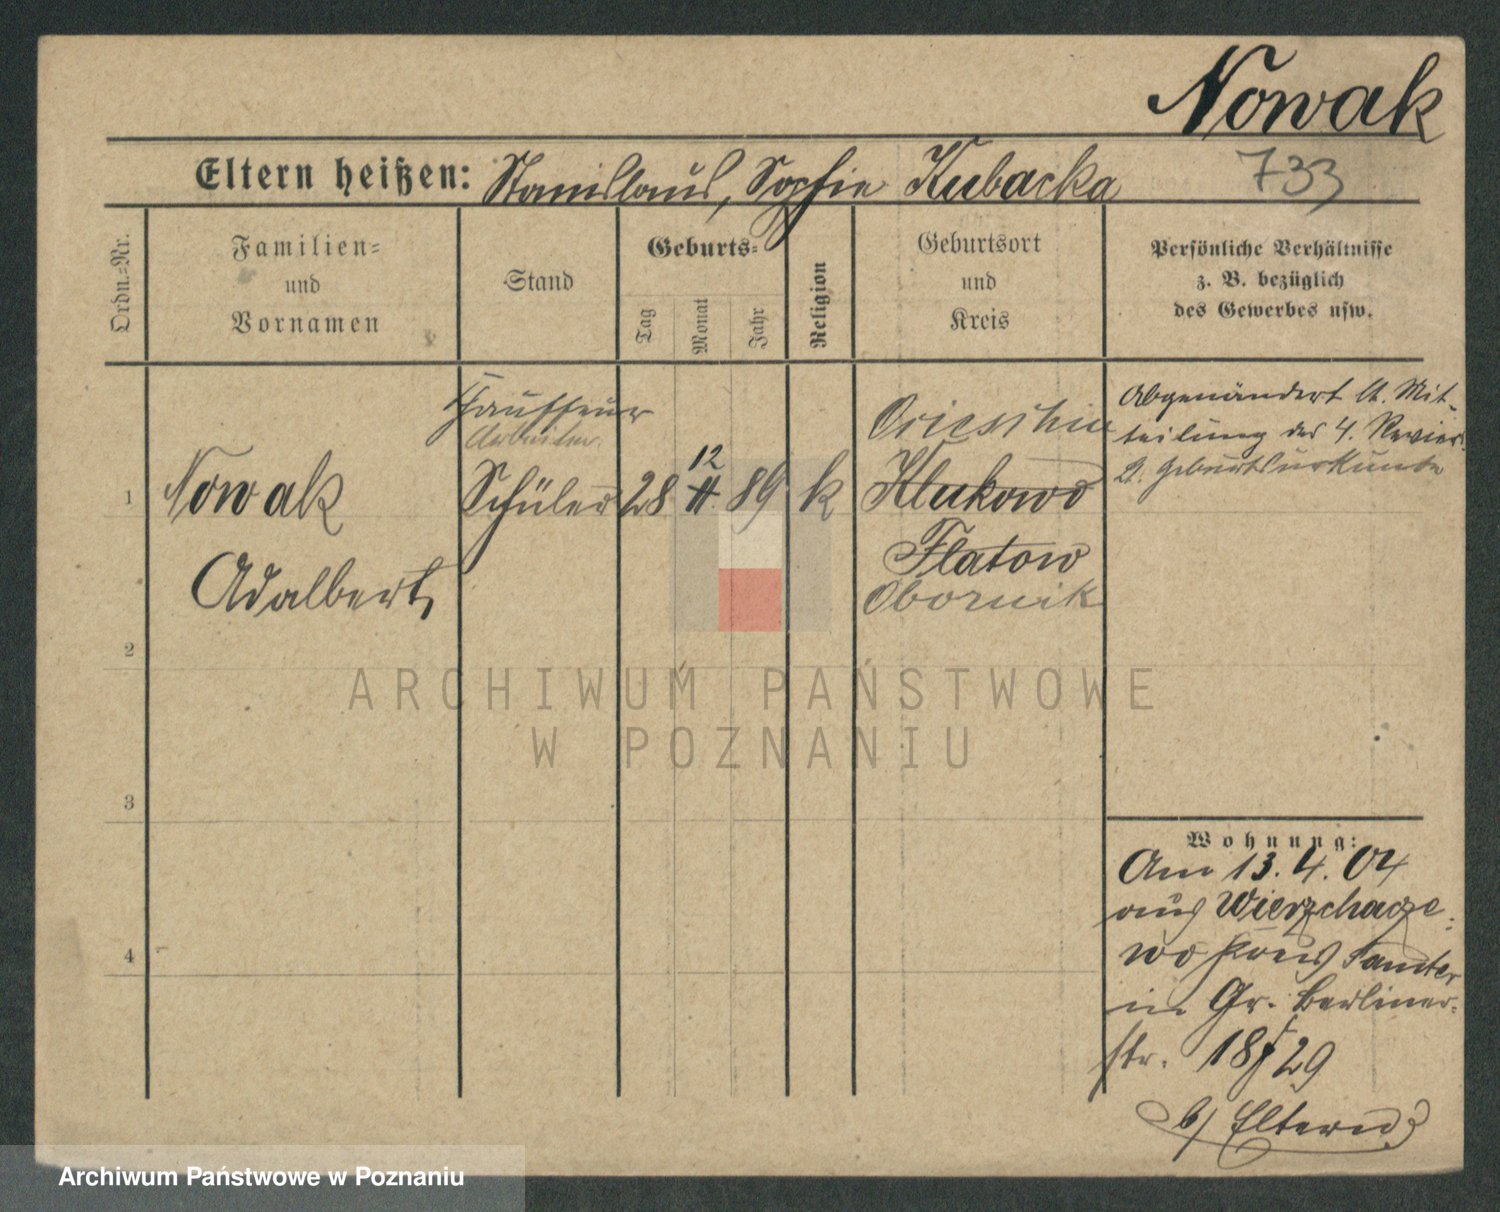 Nowak
733
Eltern heißen: Stanislaus, Sophie Kubacka
Ordn.=Nr.
Familien=
und
Vornamen
Stand
Geburts=
Tag
Monat
Jahr
Religion
Geburtsort
und
Kreis
Persönliche Verhältnisse
z. B. bezüglich
des Gewerbes usw.
Chauffeur
Arbeiter
1 Nowak Schüler 28 11. 89 k Klukowo
12
Adalbert
Flatow
Obornik
Abgenändert lt. Mit-
teilung des 4. Revier
lt. Geburtsurkunde
2
3
4
Wohnung:
Am 13. 4. 04
aus Wierzchacze-
wo Kreis Samter
in Gr. Berliner-
str. 18/29
b/ Eltern
ARCHIWUM PAŃSTWOWE
W POZNANIU
Archiwum Państwowe w Poznaniu